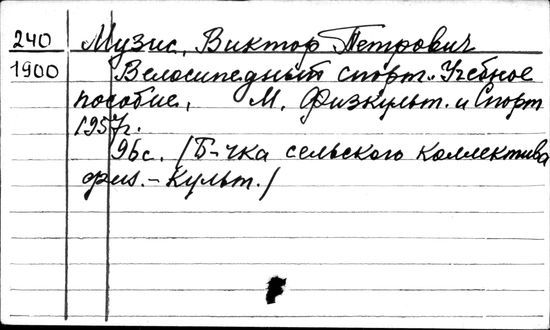 240 Музис, Виктор Петрович
1900 Велосипедный спорт. Учебное
пособие, М. Физкульт. и Спорт
1957г.
96с. (Б-чка сельского коллектива
физ.-культ.)